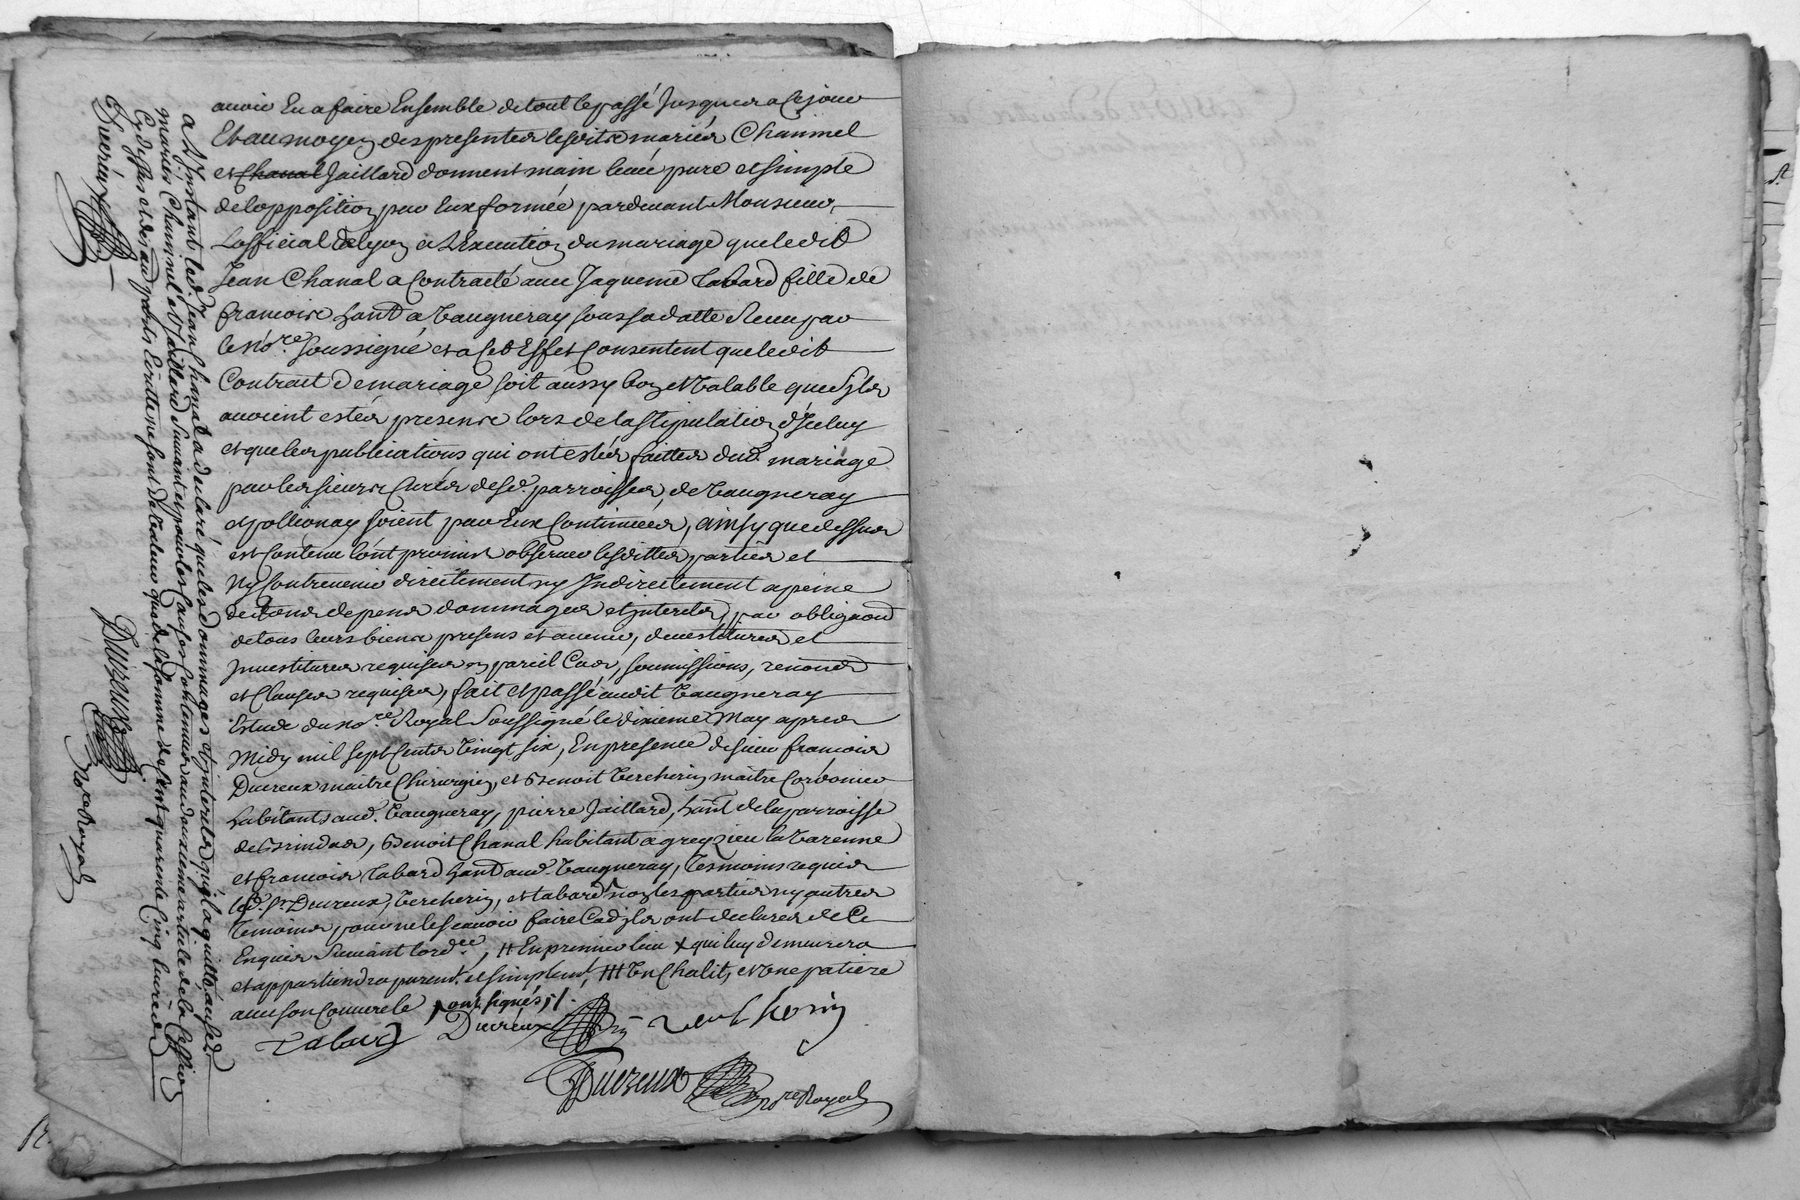 avoir Eu a faire Ensemble de tout le passé Jusques a Ce jour
Et au moyen des presentes lesdits mariés Chammel
et Chanal Jaillard donnent main levée pure et simple
de lopposition par Eux formée pardevant Monsieur
Lofficial de lyon a L'Execution du mariage que ledit
Jean Chanal a Contracté avec Jaqueme Tabard fille de
francois hant a Vaugneray sous sa datte Receu par
le No.re soussigné et a Cet Effet Consentent que ledit
Contract de mariage soit aussy bon et Valable que syls
avoient estés presens lors de la stipulation d'Iceluy
et que les publications qui ont estés faittes dud. mariage
par les sieurs Curés desd. parroisses, de Vaugneray
et pollionay soient par Eux Continuées, ainsy que dessus
est Contenu l'ont promis observer lesdittes parties et
Ny Contrevenir directement ny Indirectement a peine
de tous depens dommages et interets, par obligaon
de tous leurs biens presens et avenir, devestitures et
Investitures requises en pareil Cas, soumissions, renons
et Clauses requises, fait et passé audit Vaugneray
Estude du no.re Royal soussigné le dixieme May apres
Midy mil sept Cents vingt six, En presence de sieur francois
Ducreux maitre Chirurgien, et Benoit Vercherin maitre Cordonier
habitants aud. Vaugneray, pierre Jaillard, hant de la parroisse
de Brindas, Benoit Chanal habitant a grezieu la Varenne
et francois Tabard hant aud. Vaugneray, Tesmoins requis
lesd. sr Ducreux, Vercherin, et tabard non les parties ny autres
temoins pour ne le scavoir faire Cad yls ont declarés de Ce
Enquis Suivant lord.ce, # En premier lieu + qui luy demeurera
et appartiendra purent. et simplemt, ### Un Chalit, et Une patiere
avec son Couvercle / ont signés /.
Tabard Ducreux Vercherin
Ducreux no.re Royal
a L'Instant led. Jean Chanal a declaré que les dommages et interets qu'il a quitté auxd.
mariés Chammel et Jaillard Suivant et pour les Causes Contenues au douxieme article de la Cession
Cy dessus et des au part Ecritte ne sont de Valeur que de la somme de Cent quarente Cinq livres
Ducreux
Ducreux
No.re Royal